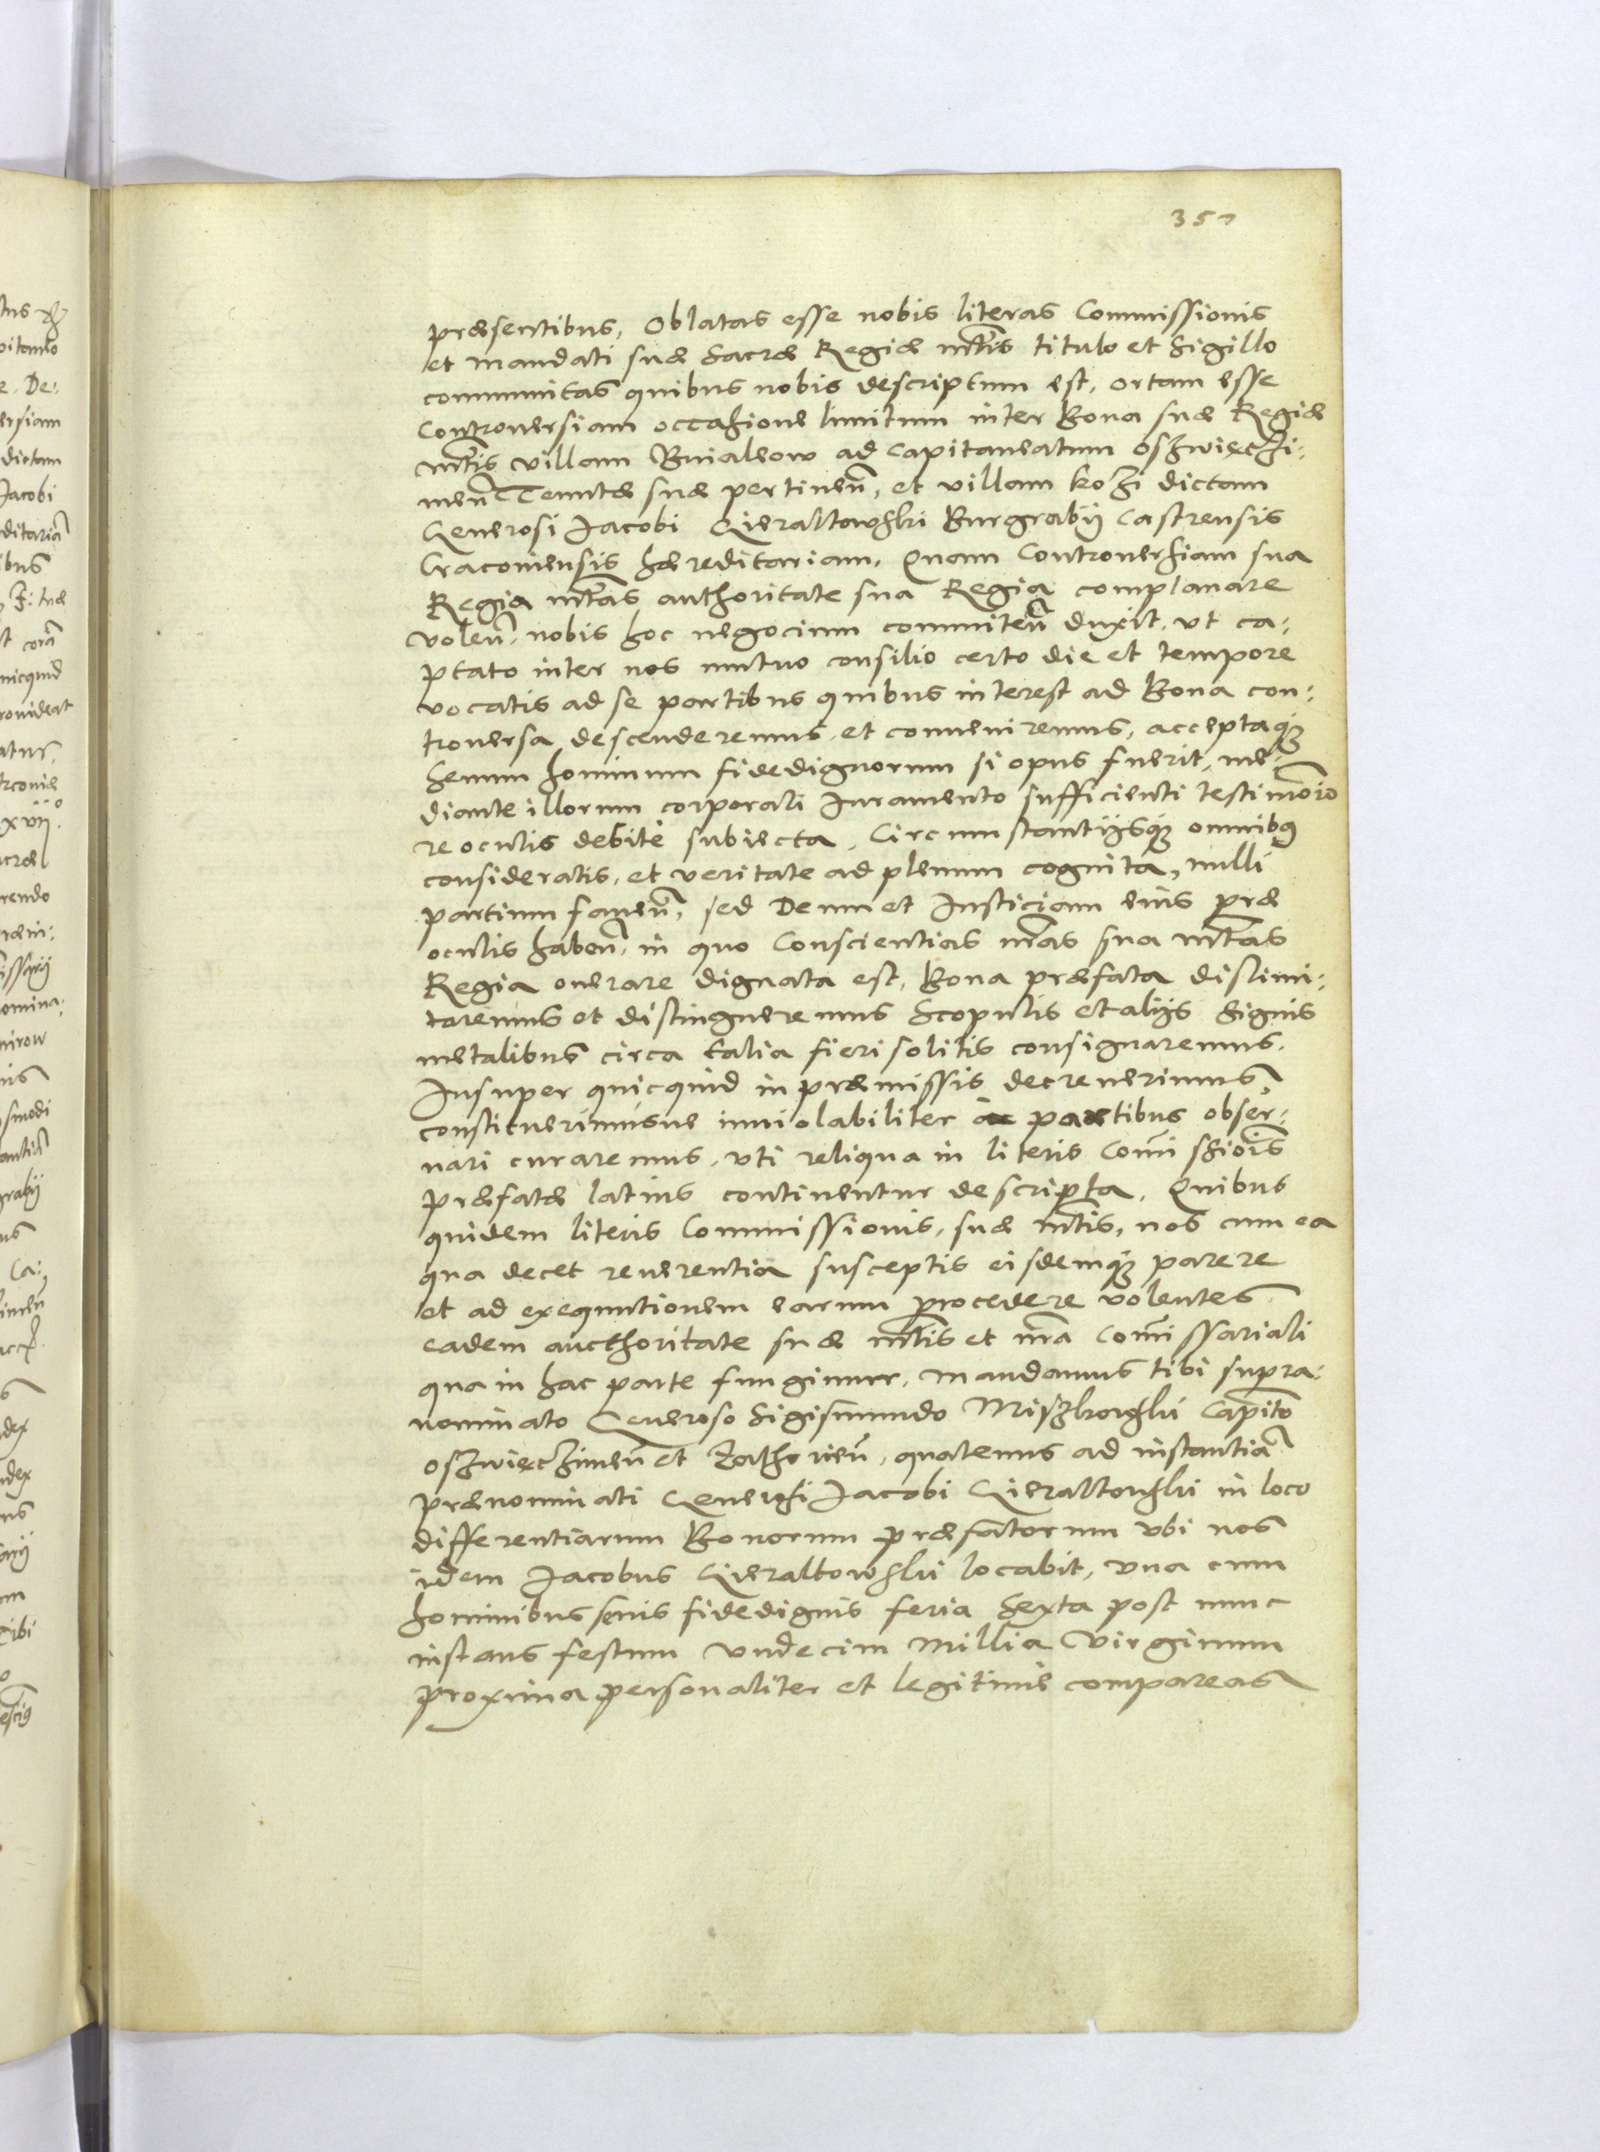 351
præsentibus, Oblatas esse nobis literas Commissionis
et mandati suæ Sacræ Regiæ mtis titulo et Sigillo
communitas quibus nobis descriptum est, ortam esse
Controuersiam occasione limitum inter Bona suæ Regiæ
mtis villam Buialeow ad Capitaneatum Oszwięczi-
men Tenutæ suæ pertinen, et villam kozi dictam
Generosi Jacobi Gieraltowski Burgrabij Castrensis
Cracouiensis hæreditariam, Quam Controuersiam sua
Regia mtas authoritate sua Regia complanare
volen, nobis hoc negocium commiten duxit, vt ca-
ptato inter nos mutuo consilio certo die et tempore
vocatis ad se partibus quibus interest ad Bona con-
trouersa descenderemus, et conueniremus, acceptaque
senum hominum fidedignorum si opus fuerit, me-
diante illorum corporali Juramento sufficienti testimonio
re oculis debitè subiecta, Circumstantijsque omnibus
consideratis, et veritate ad plenum cognita, nulli
partium fauen, sed Deum et Justiciam eius præ
oculis haben, in quo Conscientias nras sua mtas
Regia onerare dignata est, Bona præfata dislimi-
taremus et distingueremus Scopulis et alijs Signis
metalibus circa talia fieri solitis consignaremus.
Insuper quicquid in præmissis decreuerimus,
constituerimusue inuiolabiliter a partibus obser-
uari curaremus, vti reliqua in literis Comissiois
præfatæ latius continentur descripta, Quibus
quidem literis Commissionis, suæ mtis, nos cum ea
qua decet reuerentia susceptis eisdemque parere
et ad exequutionem earum procedere volentes
eadem aucthoritate suæ mtis et nra Comissariali
qua in hac parte fungimur, mandamus tibi supra-
nominato Generoso Sigismundo Miszkowski Capito
Oszwięczimen et Zathorien, quatenus ad instantiā
prænominati Generosi Jacobi Gieraltowski in loco
differentiarum Bonorum præfatorum vbi nos
idem Jacobus Gieraltowski locabit, vna cum
hominibus senis fidedignis feria Sexta post nunc
instans festum Vndecim Millia Virginum
proxima personaliter et legitimè compareas